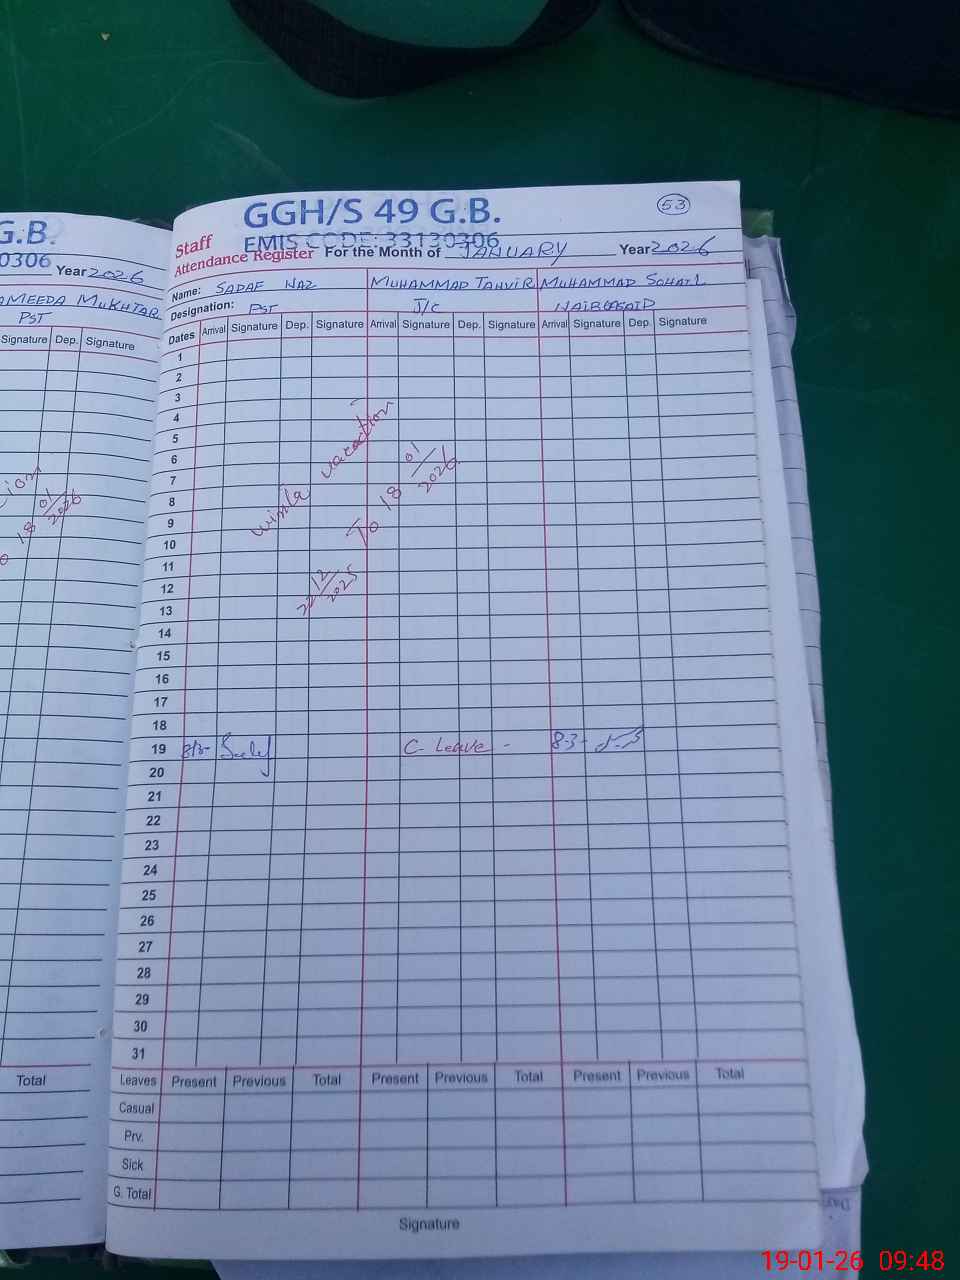 G.B.
0306 Year 2026
AMEEDA MUKHTAR
PST
Signature Dep. Signature
18 01/2026
Total
GGH/S 49 G.B.
53
EMIS CODE: 33130306
Staff
Attendance Register For the Month of JANUARY Year 2026
Name: SADAF NAZ MUHAMMAD TANVIR MUHAMMAD SOHAIL
Designation: PST J/C
Dates Arrival Signature Dep. Signature Arrival Signature Dep. Signature Arrival Signature Dep. Signature
1
2
3
4
5
6
7
8
9
10
11
12
13
14
15
16
17
18
19 C- Leave - 8-3-
20
21
22
23
24
25
26
27
28
29
30
31
vacation
22/12/2025 To 18 01/2026
Leaves Present Previous Total Present Previous Total Present Previous Total
Casual
Prv.
Sick
G. Total
Signature
19-01-26 09:48